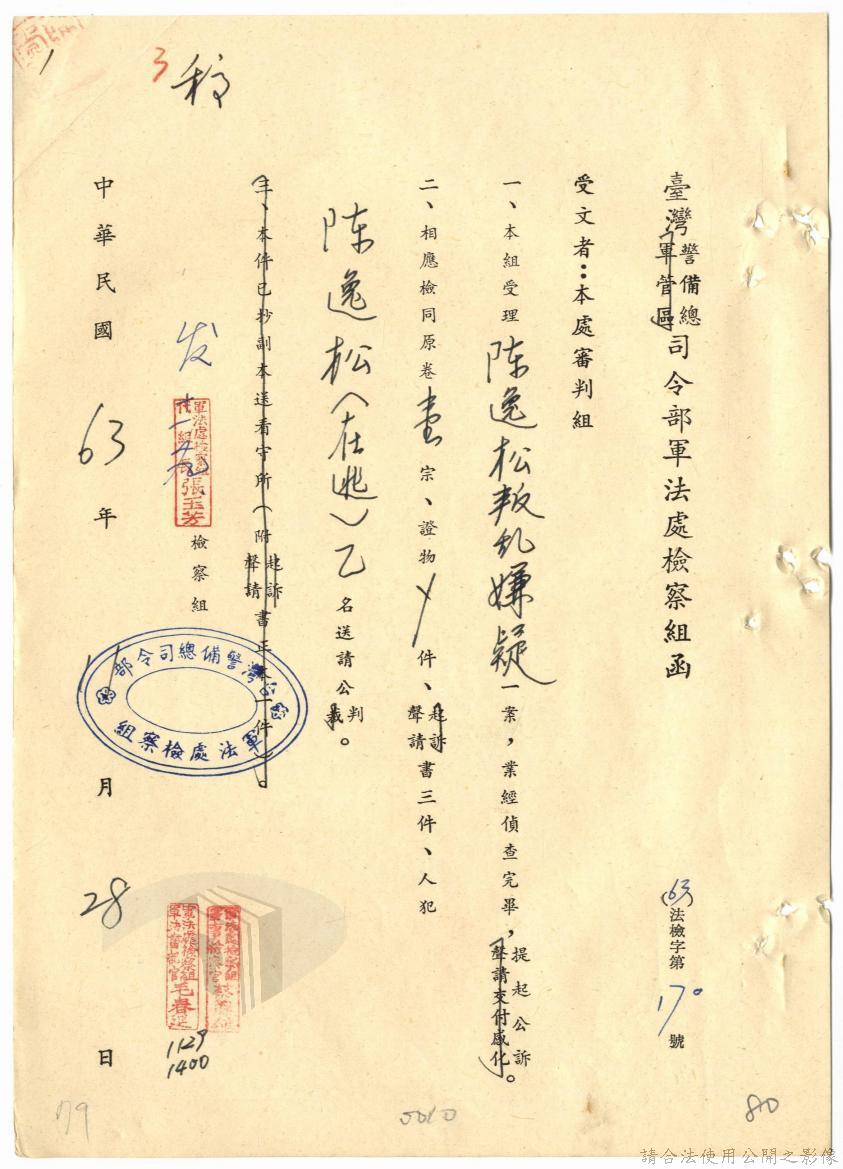 稿
3
1
臺灣警備總軍管區司令部軍法處檢察組函
63法檢字第170號
受文者：本處審判組
一、本組受理陈逸松叛乱嫌疑一案，業經偵查完畢，提起公訴聲請交付感化。
二、相應檢同原卷壹宗、證物 件、起訴聲請書三件、人犯
陈逸松（在逃）乙名送請公判裁。
三、本件已抄副本送看守所（附起訴聲請書正本一件）。
檢察組
发
軍法處檢察組
組長張玉芳
台灣警備總司令部
軍法處檢察組
中華民國63年11月28日
軍法處檢察組
毛春
1129
1400
79
0010
80
請合法使用公開之影像